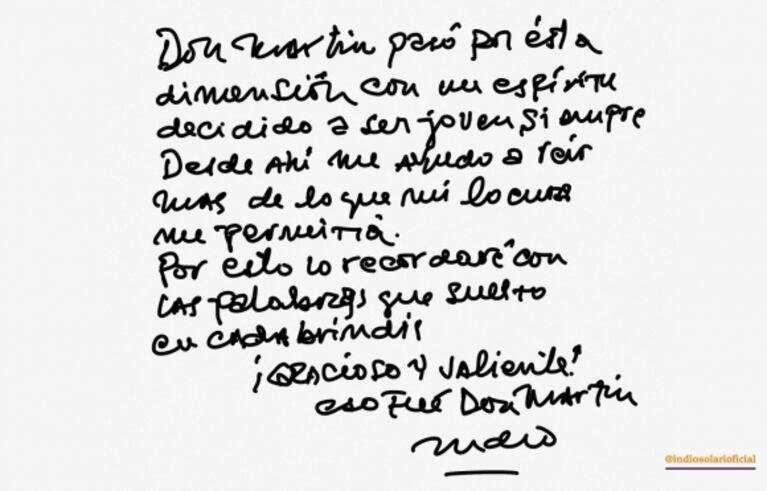 Don Martin pasó por ésta
dimensión con un espíritu
decidido a ser joven siempre
Desde Ahí me ayudo a reír
mas de lo que mi locura
me permitía.
Por esto lo recordaré con
LAS palabras que suelto
en cada brindis
¡GRACIOSO Y valiente!
eso Fué Don Martin
Indio
@indiosolarioficial